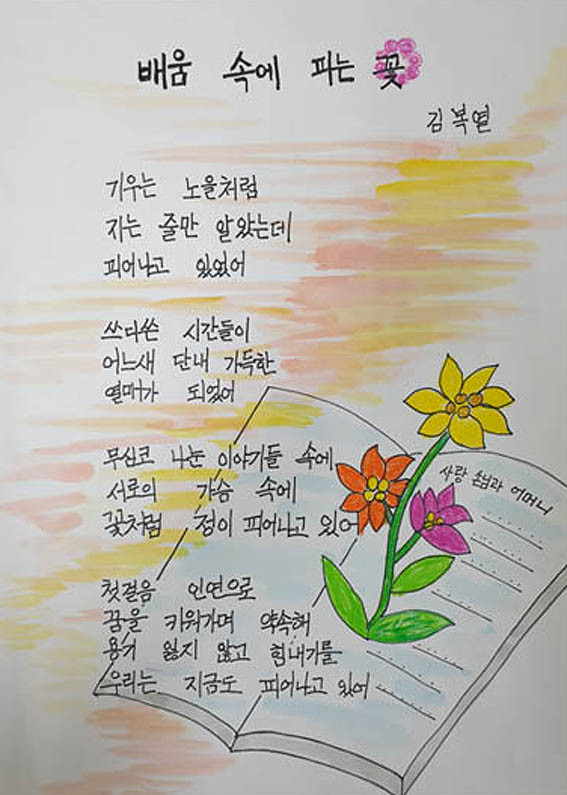 배움 속에 피는 꽃
김복열
기우는 노을처럼
지는 줄만 알았는데
피어나고 있었어
쓰디쓴 시간들이
어느새 단내 가득한
열매가 되었어
무심코 나눈 이야기들 속에
서로의 가슴 속에
꽃처럼 정이 피어나고 있어
첫걸음 인연으로
꿈을 키워가며 약속해
용기 잃지 않고 힘내기를
우리는 지금도 피어나고 있어
사랑 어머니